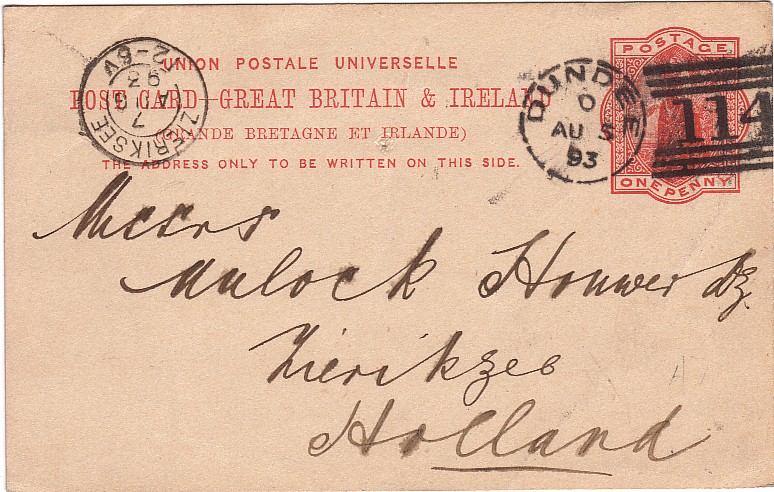 UNION POSTALE UNIVERSELLE
POST CARD—GREAT BRITAIN & IRELAND
(GRANDE BRETAGNE ET IRLANDE)
THE ADDRESS ONLY TO BE WRITTEN ON THIS SIDE.
ZIERIKSEE
7
AUG
93
12-6V
DUNDEE
O
AU 5
93
114
POSTAGE
ONE PENNY
Messrs
Mulock Houwer &z.
Zierikzee
Holland